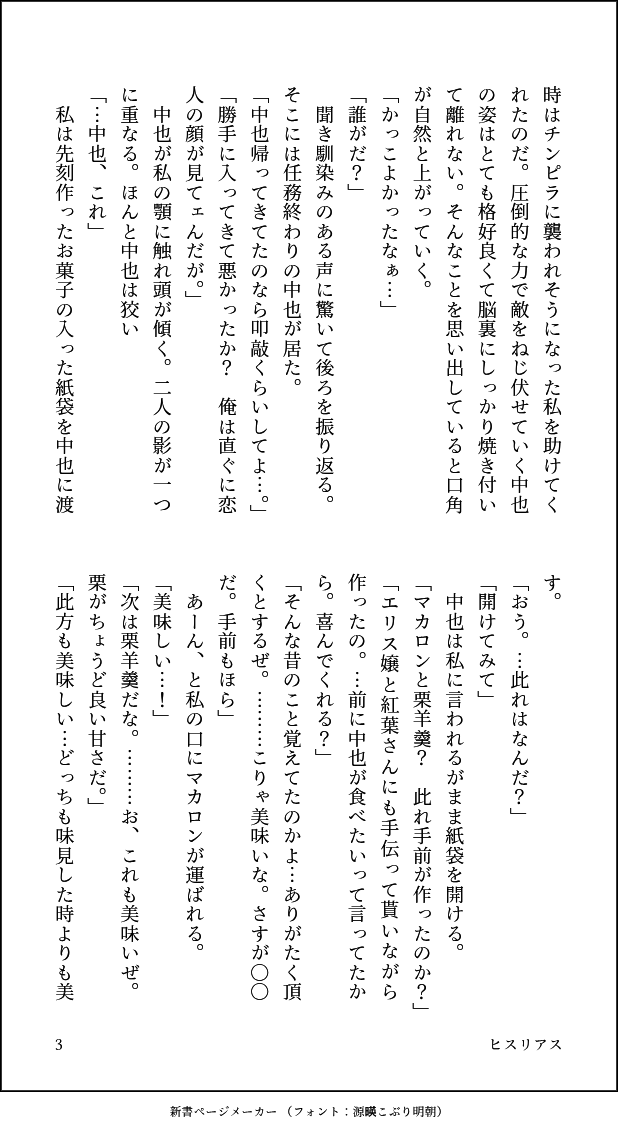 時はチンピラに襲われそうになった私を助けてく
れたのだ。圧倒的な力で敵をねじ伏せていく中也
の姿はとても格好良くて脳裏にしっかり焼き付い
て離れない。そんなことを思い出していると口角
が自然と上がっていく。
「かっこよかったなぁ…」
「誰がだ？」
聞き馴染みのある声に驚いて後ろを振り返る。
そこには任務終わりの中也が居た。
「中也帰ってきてたのなら叩敲くらいしてよ…。」
「勝手に入ってきて悪かったか？　俺は直ぐに恋
人の顔が見てェんだが。」
中也が私の顎に触れ頭が傾く。二人の影が一つ
に重なる。ほんと中也は狡い
「…中也、これ」
私は先刻作ったお菓子の入った紙袋を中也に渡
す。
「おう。…此れはなんだ？」
「開けてみて」
中也は私に言われるがまま紙袋を開ける。
「マカロンと栗羊羹？　此れ手前が作ったのか？」
「エリス嬢と紅葉さんにも手伝って貰いながら
作ったの。…前に中也が食べたいって言ってたか
ら。喜んでくれる？」
「そんな昔のこと覚えてたのかよ…ありがたく頂
くとするぜ。………こりゃ美味いな。さすが〇〇
だ。手前もほら」
あーん、と私の口にマカロンが運ばれる。
「美味しい…！」
「次は栗羊羹だな。………お、これも美味いぜ。
栗がちょうど良い甘さだ。」
「此方も美味しい…どっちも味見した時よりも美
ヒスリアス
3
新書ページメーカー（フォント：源暎こぶり明朝）